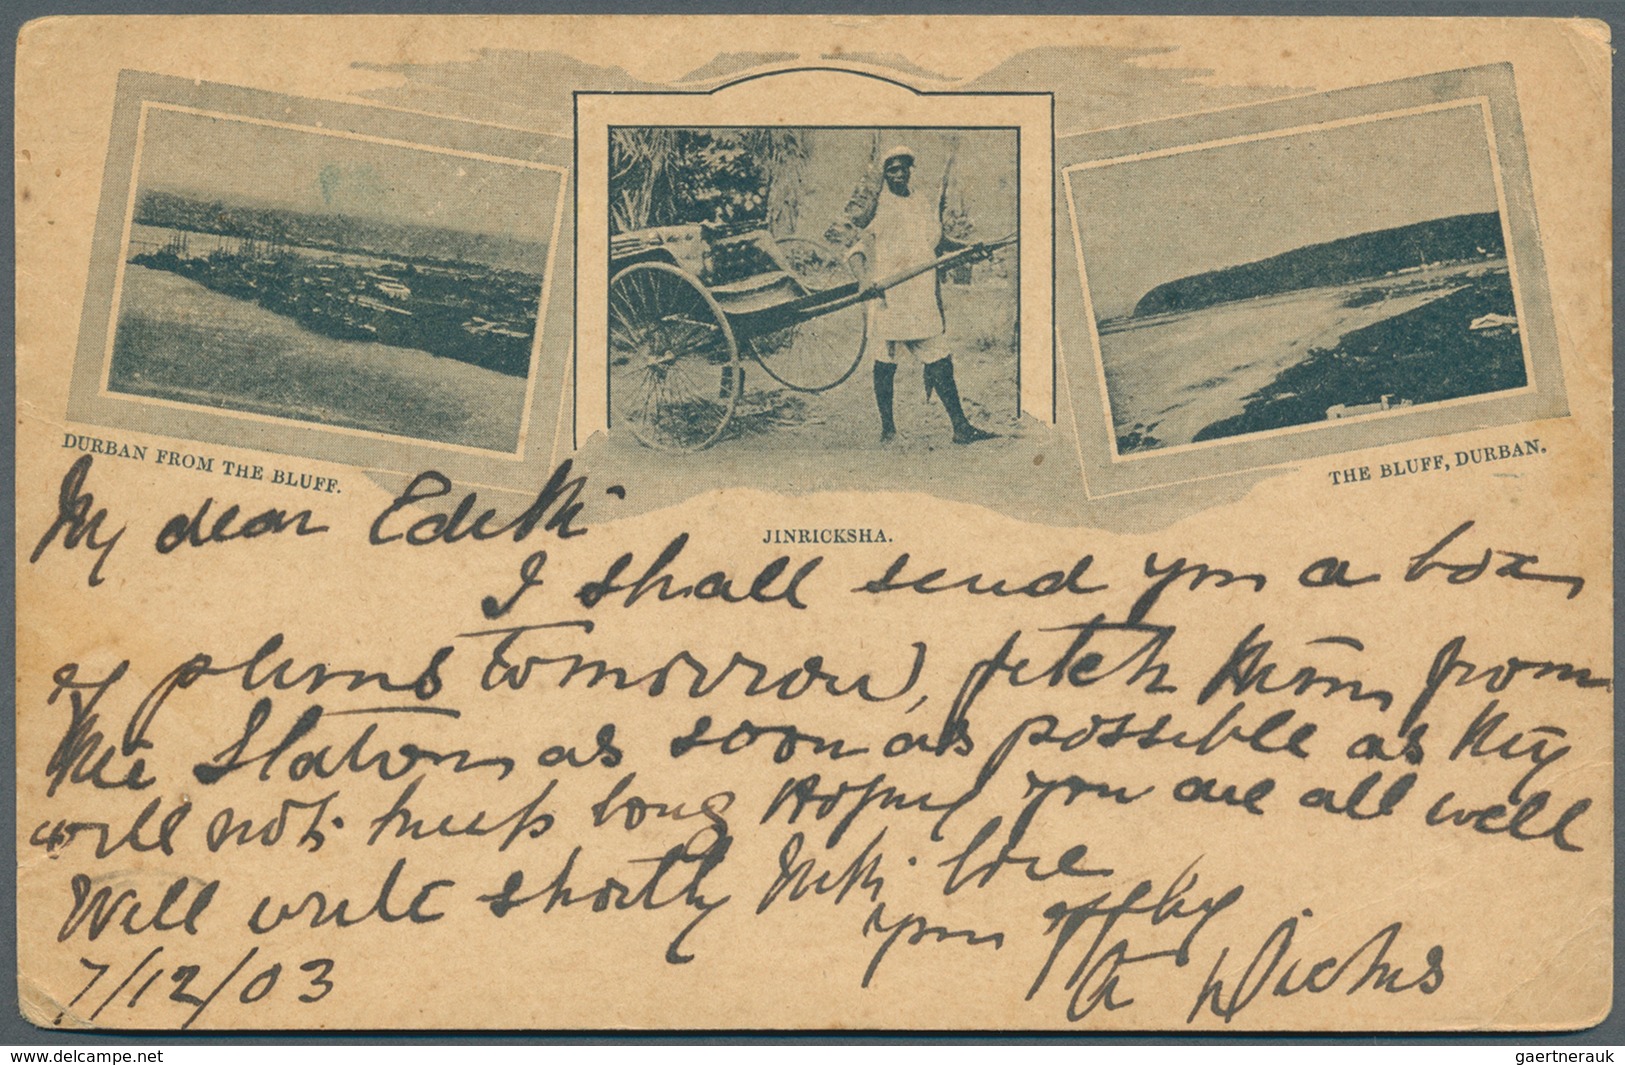 DURBAN FROM THE BLUFF.
JINRICKSHA.
THE BLUFF, DURBAN.
My dear Edith
I shall send you a box
of plums tomorrow, fetch them from
the Station as soon as possible as they
will not keep long Hoping you are all well
Will write shortly With love
your affcly
A
7/12/03
www.delcampe.net
gaertnerauk